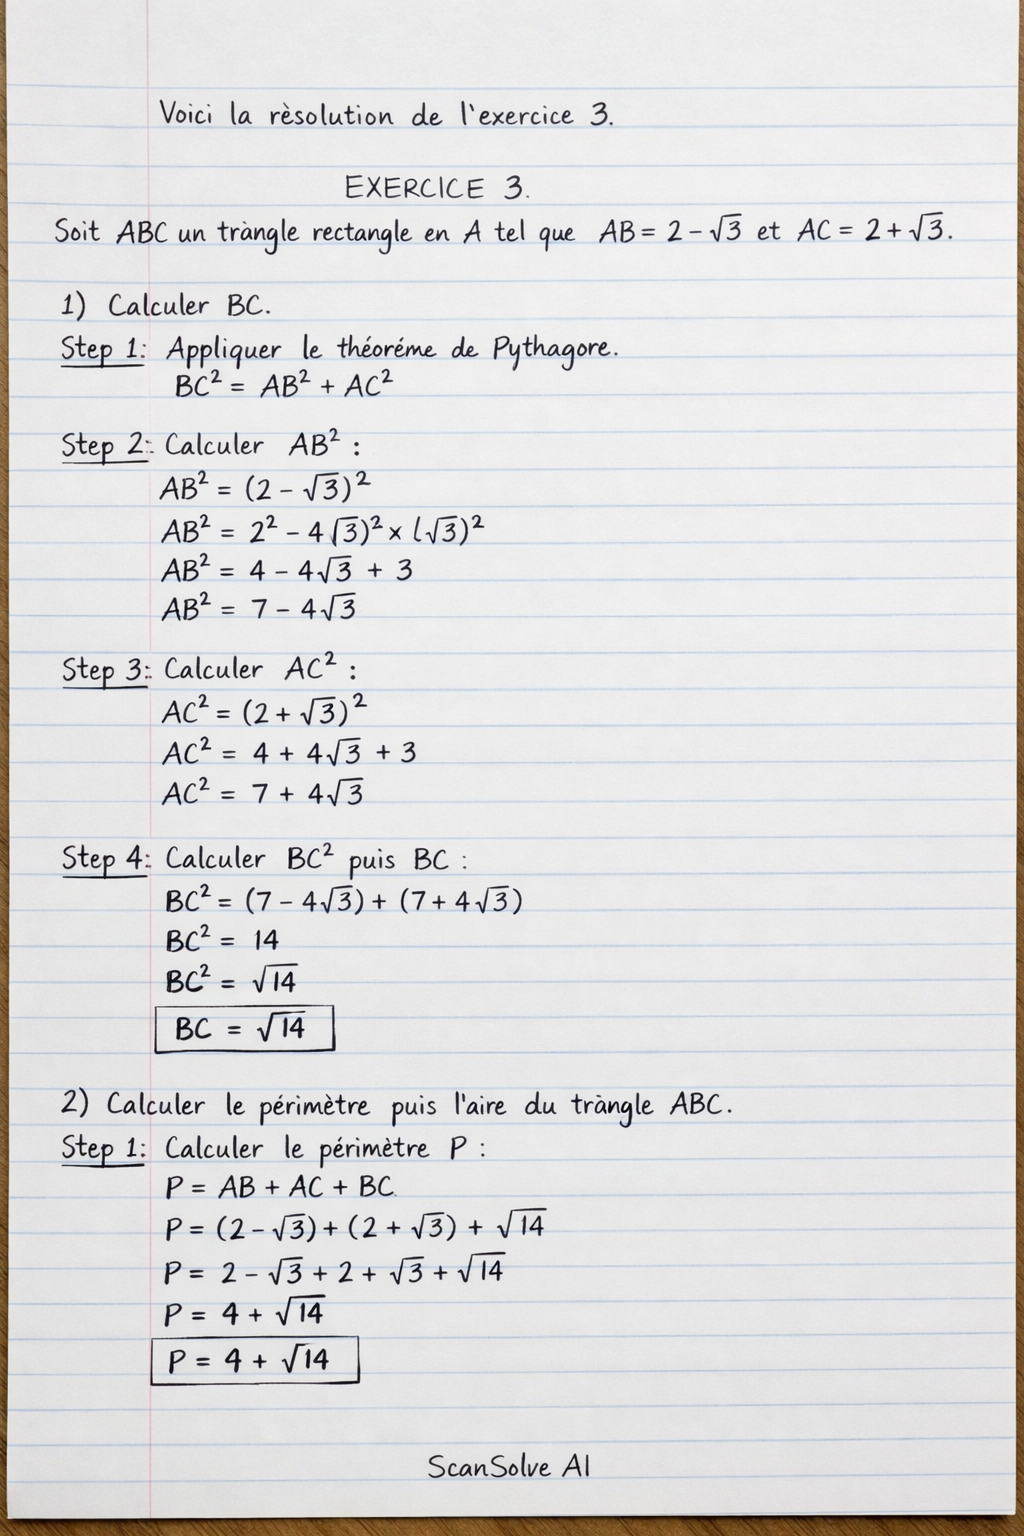 Voici la rèsolution de l'exercice 3.
EXERCICE 3.
Soit ABC un tràngle rectangle en A tel que AB = 2 - √3 et AC = 2 + √3.
1) Calculer BC.
Step 1: Appliquer le théoréme de Pythagore.
BC² = AB² + AC²
Step 2: Calculer AB² :
AB² = (2 - √3)²
AB² = 2² - 4√3)² × (√3)²
AB² = 4 - 4√3 + 3
AB² = 7 - 4√3
Step 3: Calculer AC² :
AC² = (2 + √3)²
AC² = 4 + 4√3 + 3
AC² = 7 + 4√3
Step 4: Calculer BC² puis BC :
BC² = (7 - 4√3) + (7 + 4√3)
BC² = 14
BC² = √14
BC = √14
2) Calculer le périmètre puis l'aire du tràngle ABC.
Step 1: Calculer le périmètre P :
P = AB + AC + BC.
P = (2 - √3) + (2 + √3) + √14
P = 2 - √3 + 2 + √3 + √14
P = 4 + √14
P = 4 + √14
ScanSolve AI